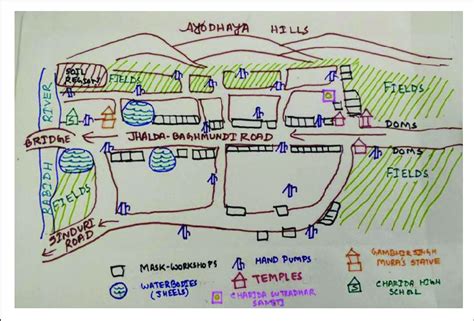 AYODHAYA HILLS
SOIL
REGION
FIELDS
FIELDS
FIELDS
RIVER
S
BRIDGE
JHALDA-BAGHMUNDI ROAD
DOMS
DOMS
RABIDH
FIELDS
FIELDS
SINDURI
ROAD
MASK-WORKSHOPS
WATERBODIES
(JHEELS)
HAND PUMPS
TEMPLES
CHARIDA SUTRADHAR
SAMITI
GAMBHIR SINGH
MURA'S STATUE
S
CHARIDA HIGH
SCHOOL